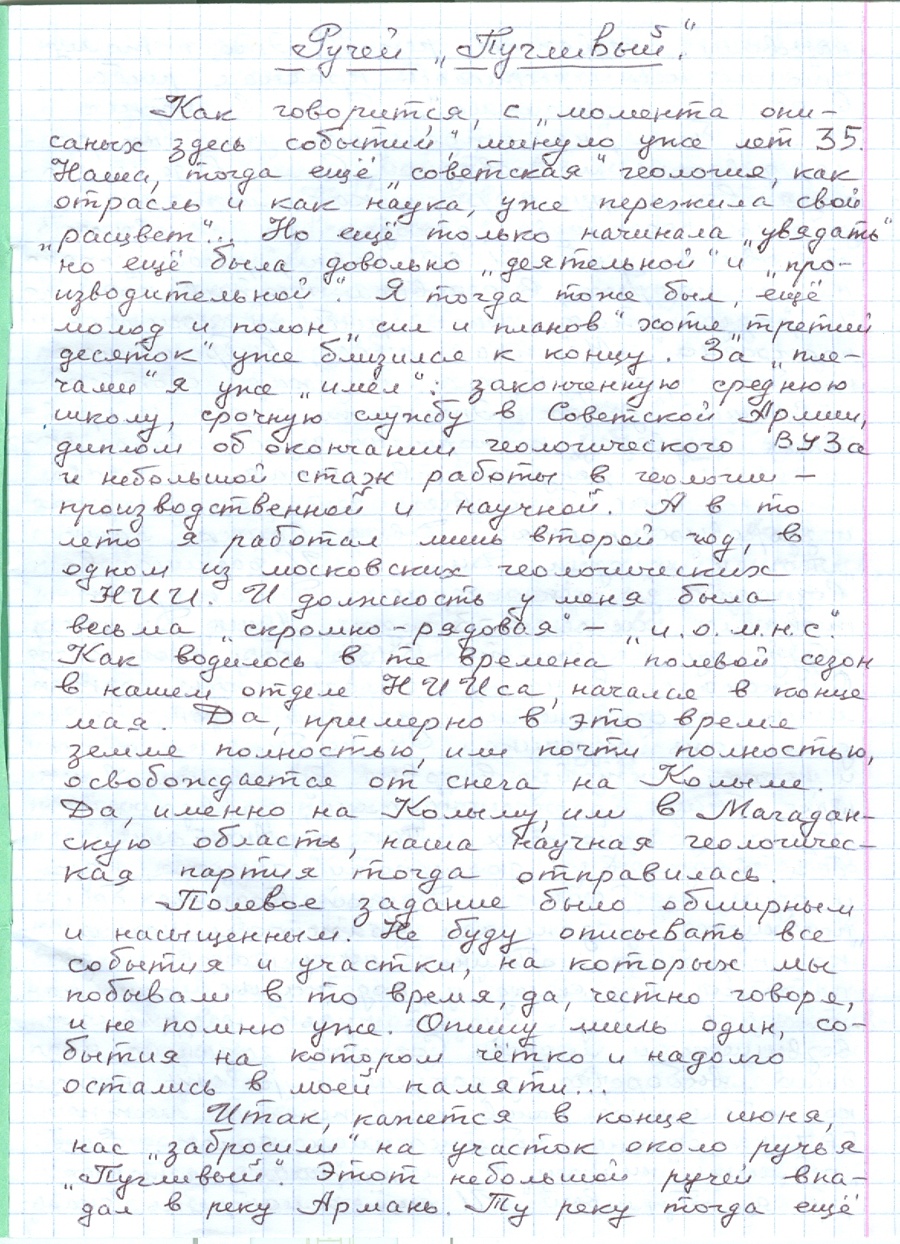 Ручей „Пугливый“.
Как говорится, с „момента опи-
саных здесь событий“, минуло уже лет 35.
Наша, тогда ещё „советская“ геология, как
отрасль и как наука, уже пережила свой
„расцвет“... Но ещё только начинала „увядать“
но ещё была довольно „деятельной“ и „про-
изводительной“. Я тогда тоже был, ещё
молод и полон „сил и планов“ хотя „третий
десяток“ уже близился к концу. За „пле-
чами“ я уже „имел“: законченную среднюю
школу, срочную службу в Советской Армии,
диплом об окончании геологического ВУЗа
и небольшой стаж работы в геологии –
производственной и научной. А в то
лето я работал лишь второй год, в
одном из московских геологических
НИИ. И должность у меня была
весьма „скромно-рядовая“ – „и.о.м.н.с“.
Как водилось в те времена полевой сезон
в нашем отделе НИИса, начался в конце
мая. Да, примерно в это время
земля полностью, или почти полностью,
освобождается от снега на Колыме.
Да, именно на Колыму, или в Магадан-
скую область, наша научная геологичес-
кая партия тогда отправилась.
Полевое задание было обширным
и насыщенным. Не буду описывать все
события и участки, на которых мы
побывали в то время, да, честно говоря,
и не помню уже. Опишу лишь один, со-
бытия на котором чётко и надолго
остались в моей памяти...
Итак, кажется в конце июня,
нас „забросили“ на участок около ручья
„Пугливый“. Этот небольшой ручей впа-
дал в реку Армань. Ту реку тогда ещё